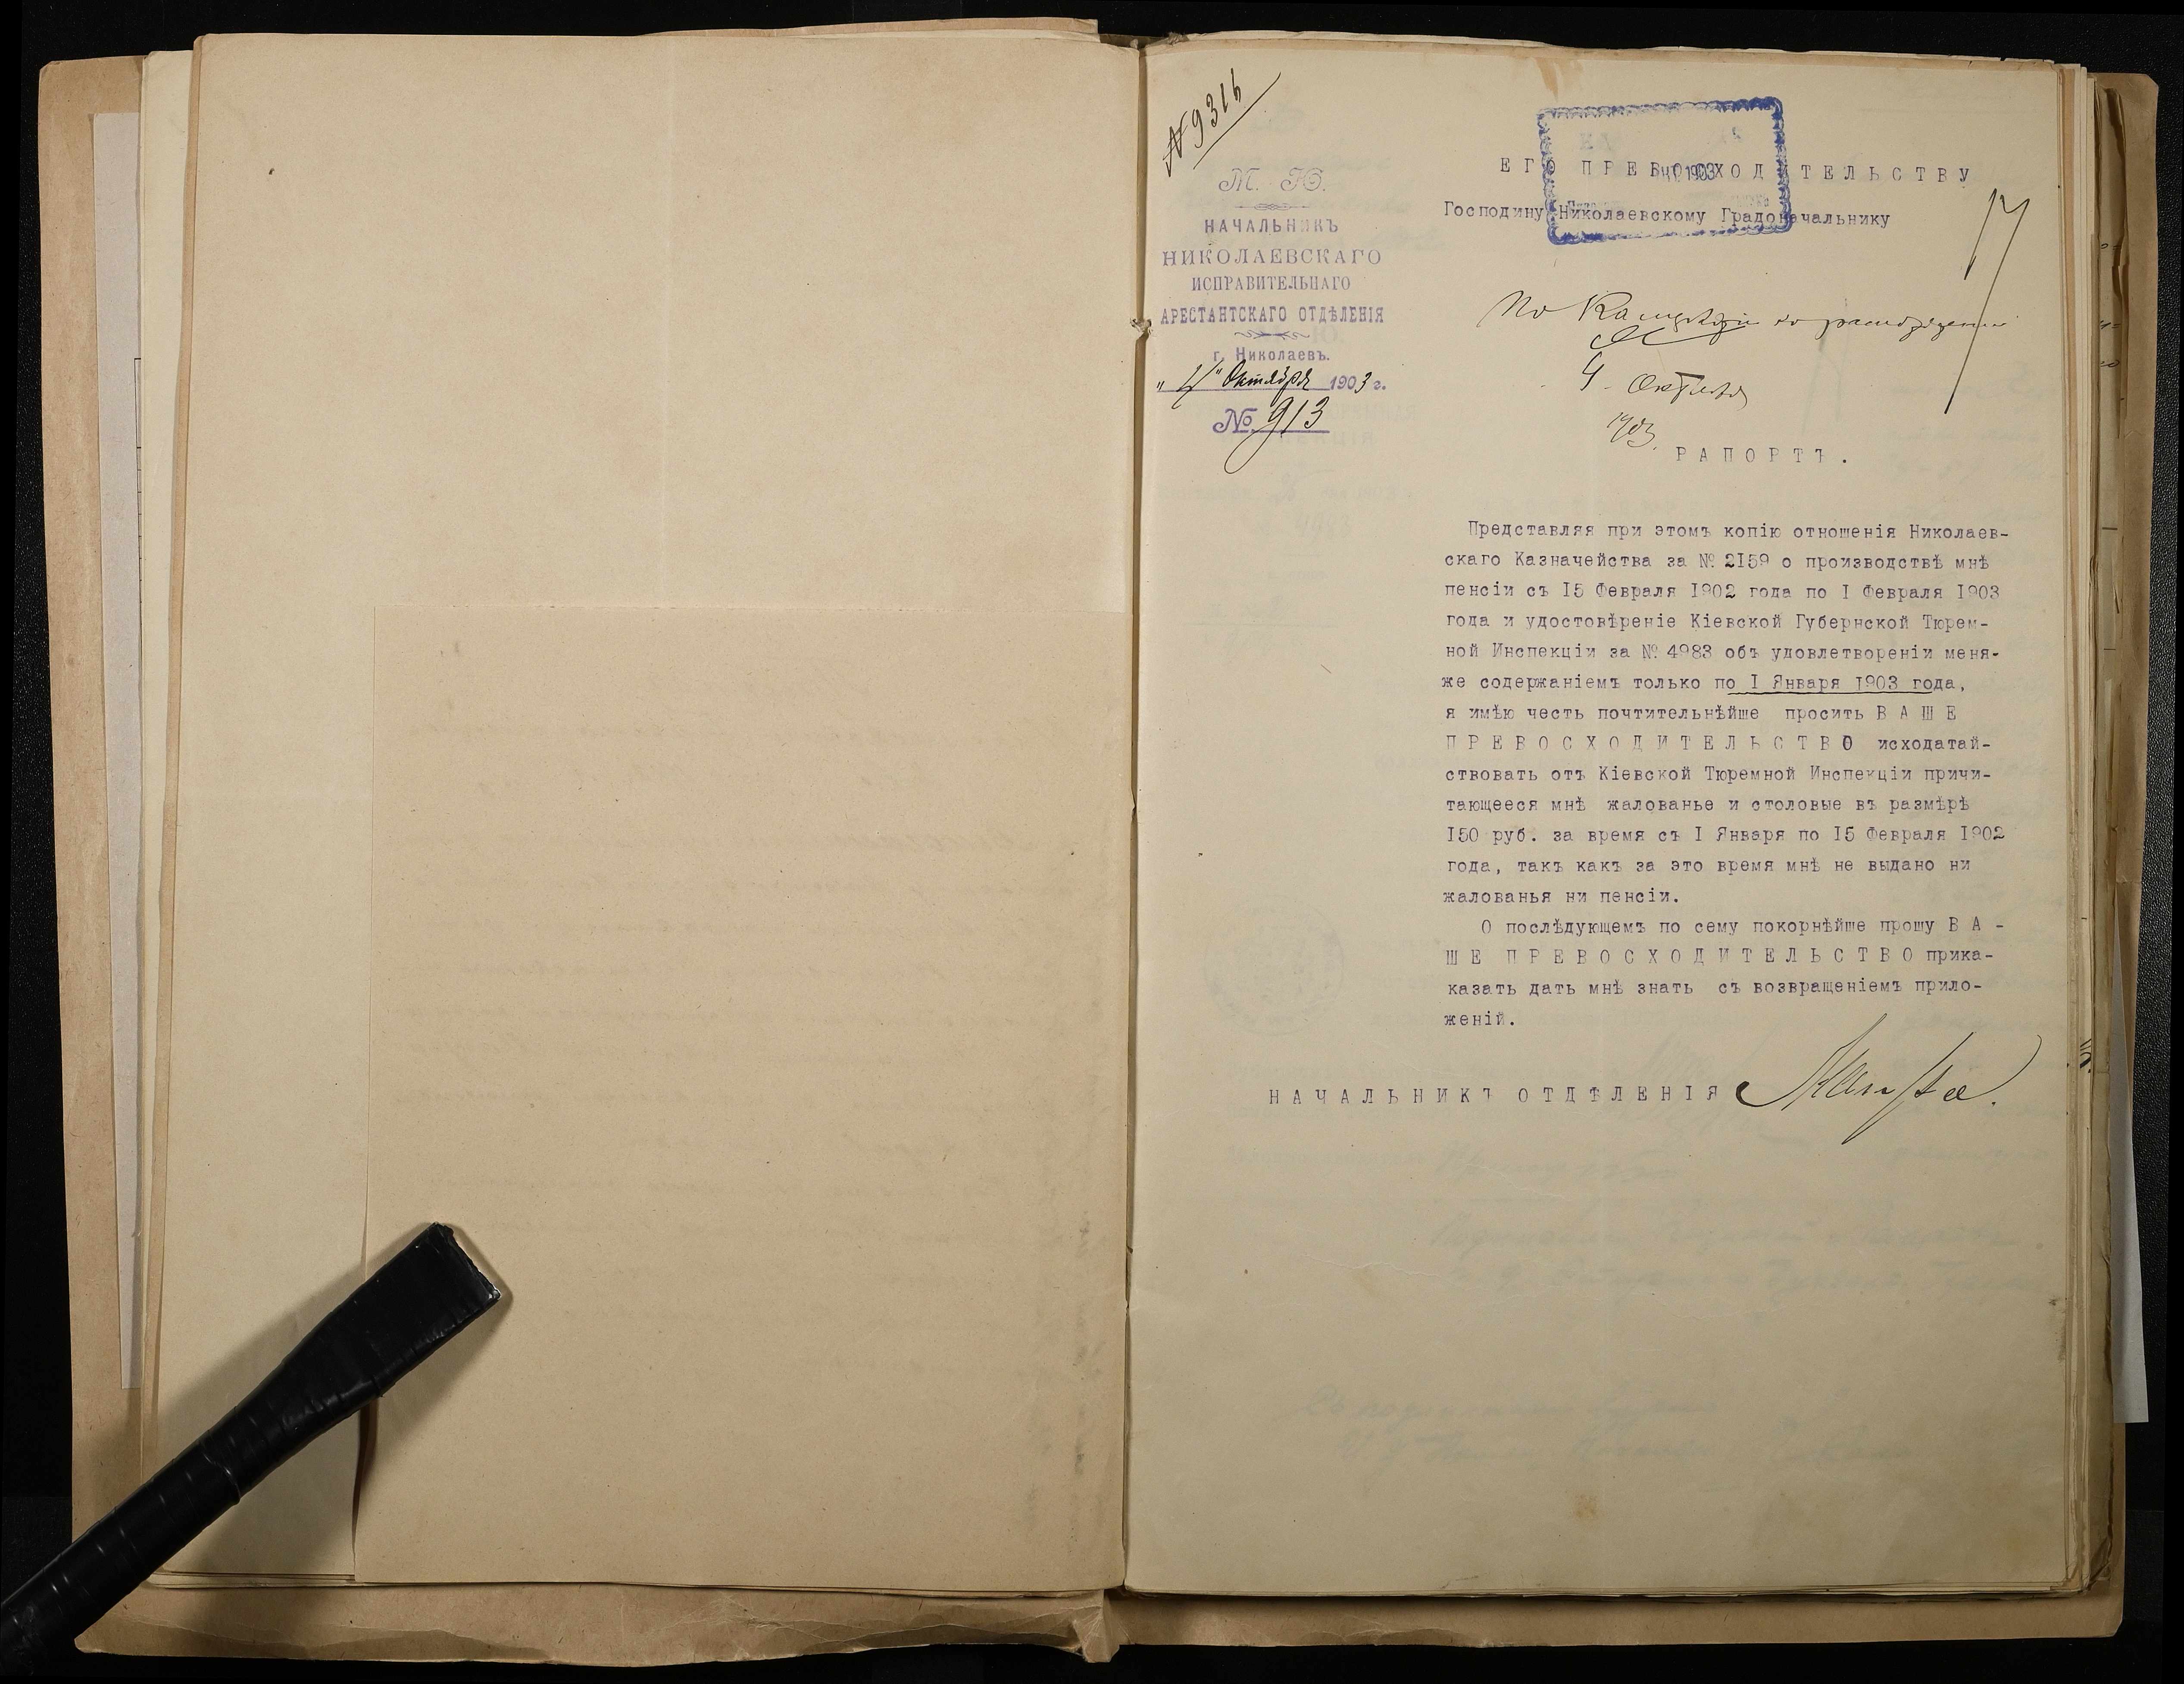 № 9316
М. Ю.
НАЧАЛЬНИКЪ
НИКОЛАЕВСКАГО
ИСПРАВИТЕЛЬНАГО
АРЕСТАНТСКАГО ОТДѢЛЕНІЯ
г. Николаевъ.
"4" Октября 1903 г.
№ 913
ЕГО ПРЕВОСХОДИТЕЛЬСТВУ
Господину Николаевскому Градоначальнику
4 Октября
1903.
РАПОРТЪ.
Представляя при этомъ копію отношенія Николаев-
скаго Казначейства за № 2I59 о производствѣ мнѣ
пенсіи съ I5 Февраля I902 года по I Февраля I903
года и удостовѣреніе Кіевской Губернской Тюрем-
ной Инспекціи за № 4983 объ удовлетвореніи меня-
же содержаніемъ только по I Января I903 года,
я имѣю честь почтительнѣйше просить ВАШЕ
ПРЕВОСХОДИТЕЛЬСТВО исходатай-
ствовать отъ Кіевской Тюремной Инспекціи причи-
тающееся мнѣ жалованье и столовые въ размѣрѣ
I50 руб. за время съ I Января по I5 Февраля I902
года, такъ какъ за это время мнѣ не выдано ни
жалованья ни пенсіи.
О послѣдующемъ по сему покорнѣйше прошу ВА-
ШЕ ПРЕВОСХОДИТЕЛЬСТВО прика-
казать дать мнѣ знать съ возвращеніемъ прило-
женій.
НАЧАЛЬНИКЪ ОТДѢЛЕНІЯ